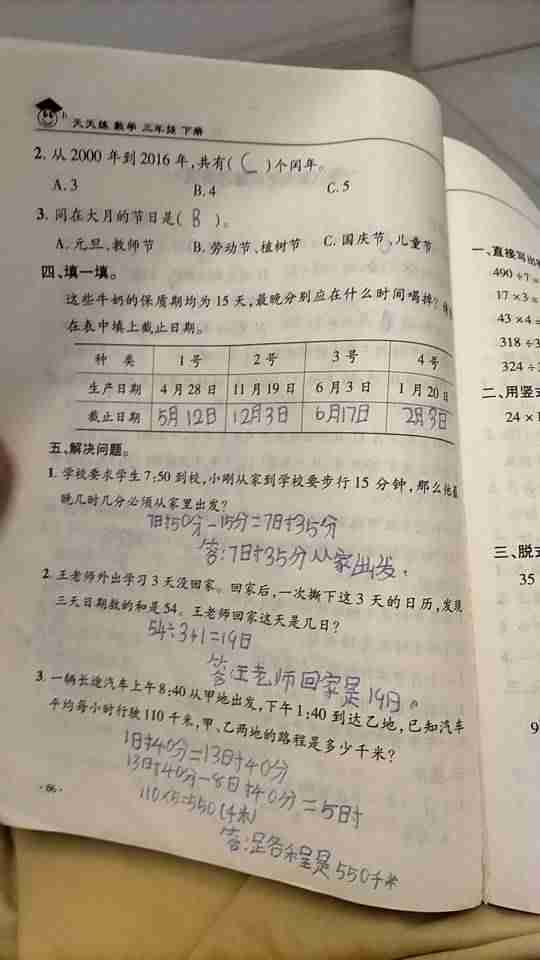 天天练 数学 三年级 下册
2. 从 2000 年到 2016 年,共有( C )个闰年。
A. 3 B. 4 C. 5
3. 同在大月的节日是( B )。
A. 元旦、教师节 B. 劳动节、植树节 C. 国庆节、儿童节
四、填一填。
这些牛奶的保质期均为 15 天,最晚分别应在什么时间喝掉?
在表中填上截止日期。
种 类 1 号 2 号 3 号 4 号
生产日期 4 月 28 日 11 月 19 日 6 月 3 日 1 月 20 日
截止日期 5月12日 12月3日 6月17日 2月3日
五、解决问题。
1. 学校要求学生 7:50 到校,小刚从家到学校要步行 15 分钟,那么他最
晚几时几分必须从家里出发?
7时50分-15分=7时35分
答:7时35分从家出发。
2. 王老师外出学习 3 天没回家。回家后,一次撕下这 3 天的日历,发现
三天日期数的和是 54。王老师回家这天是几日?
54÷3+1=19日
答:王老师回家是19日。
3. 一辆长途汽车上午 8:40 从甲地出发,下午 1:40 到达乙地,已知汽车
平均每小时行驶 110 千米,甲、乙两地的路程是多少千米?
1时40分=13时40分
13时40分-8时40分=5时
110×5=550(千米)
答:是各程是550千米
· 66 ·
一、直接写出
490÷7=
17×3=
43×4=
318÷3
324÷
二、用竖式
24×1
三、脱式
35
9